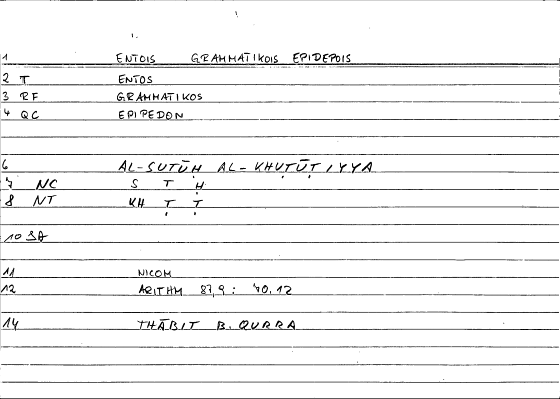 1 ENTOIS GRAMMATIKOIS EPIDEPOIS
2 T ENTOS
3 RF GRAMMATIKOS
4 QC EPIPEDON
6 AL-SUṬŪḤ AL-KHUṬŪṬIYYA
7 NC S Ṭ Ḥ
8 NT KH Ṭ Ṭ
10 SA
11 NICOM
12 ARITHM 87,9 : 40,12
14 THĀBIT B. QURRA